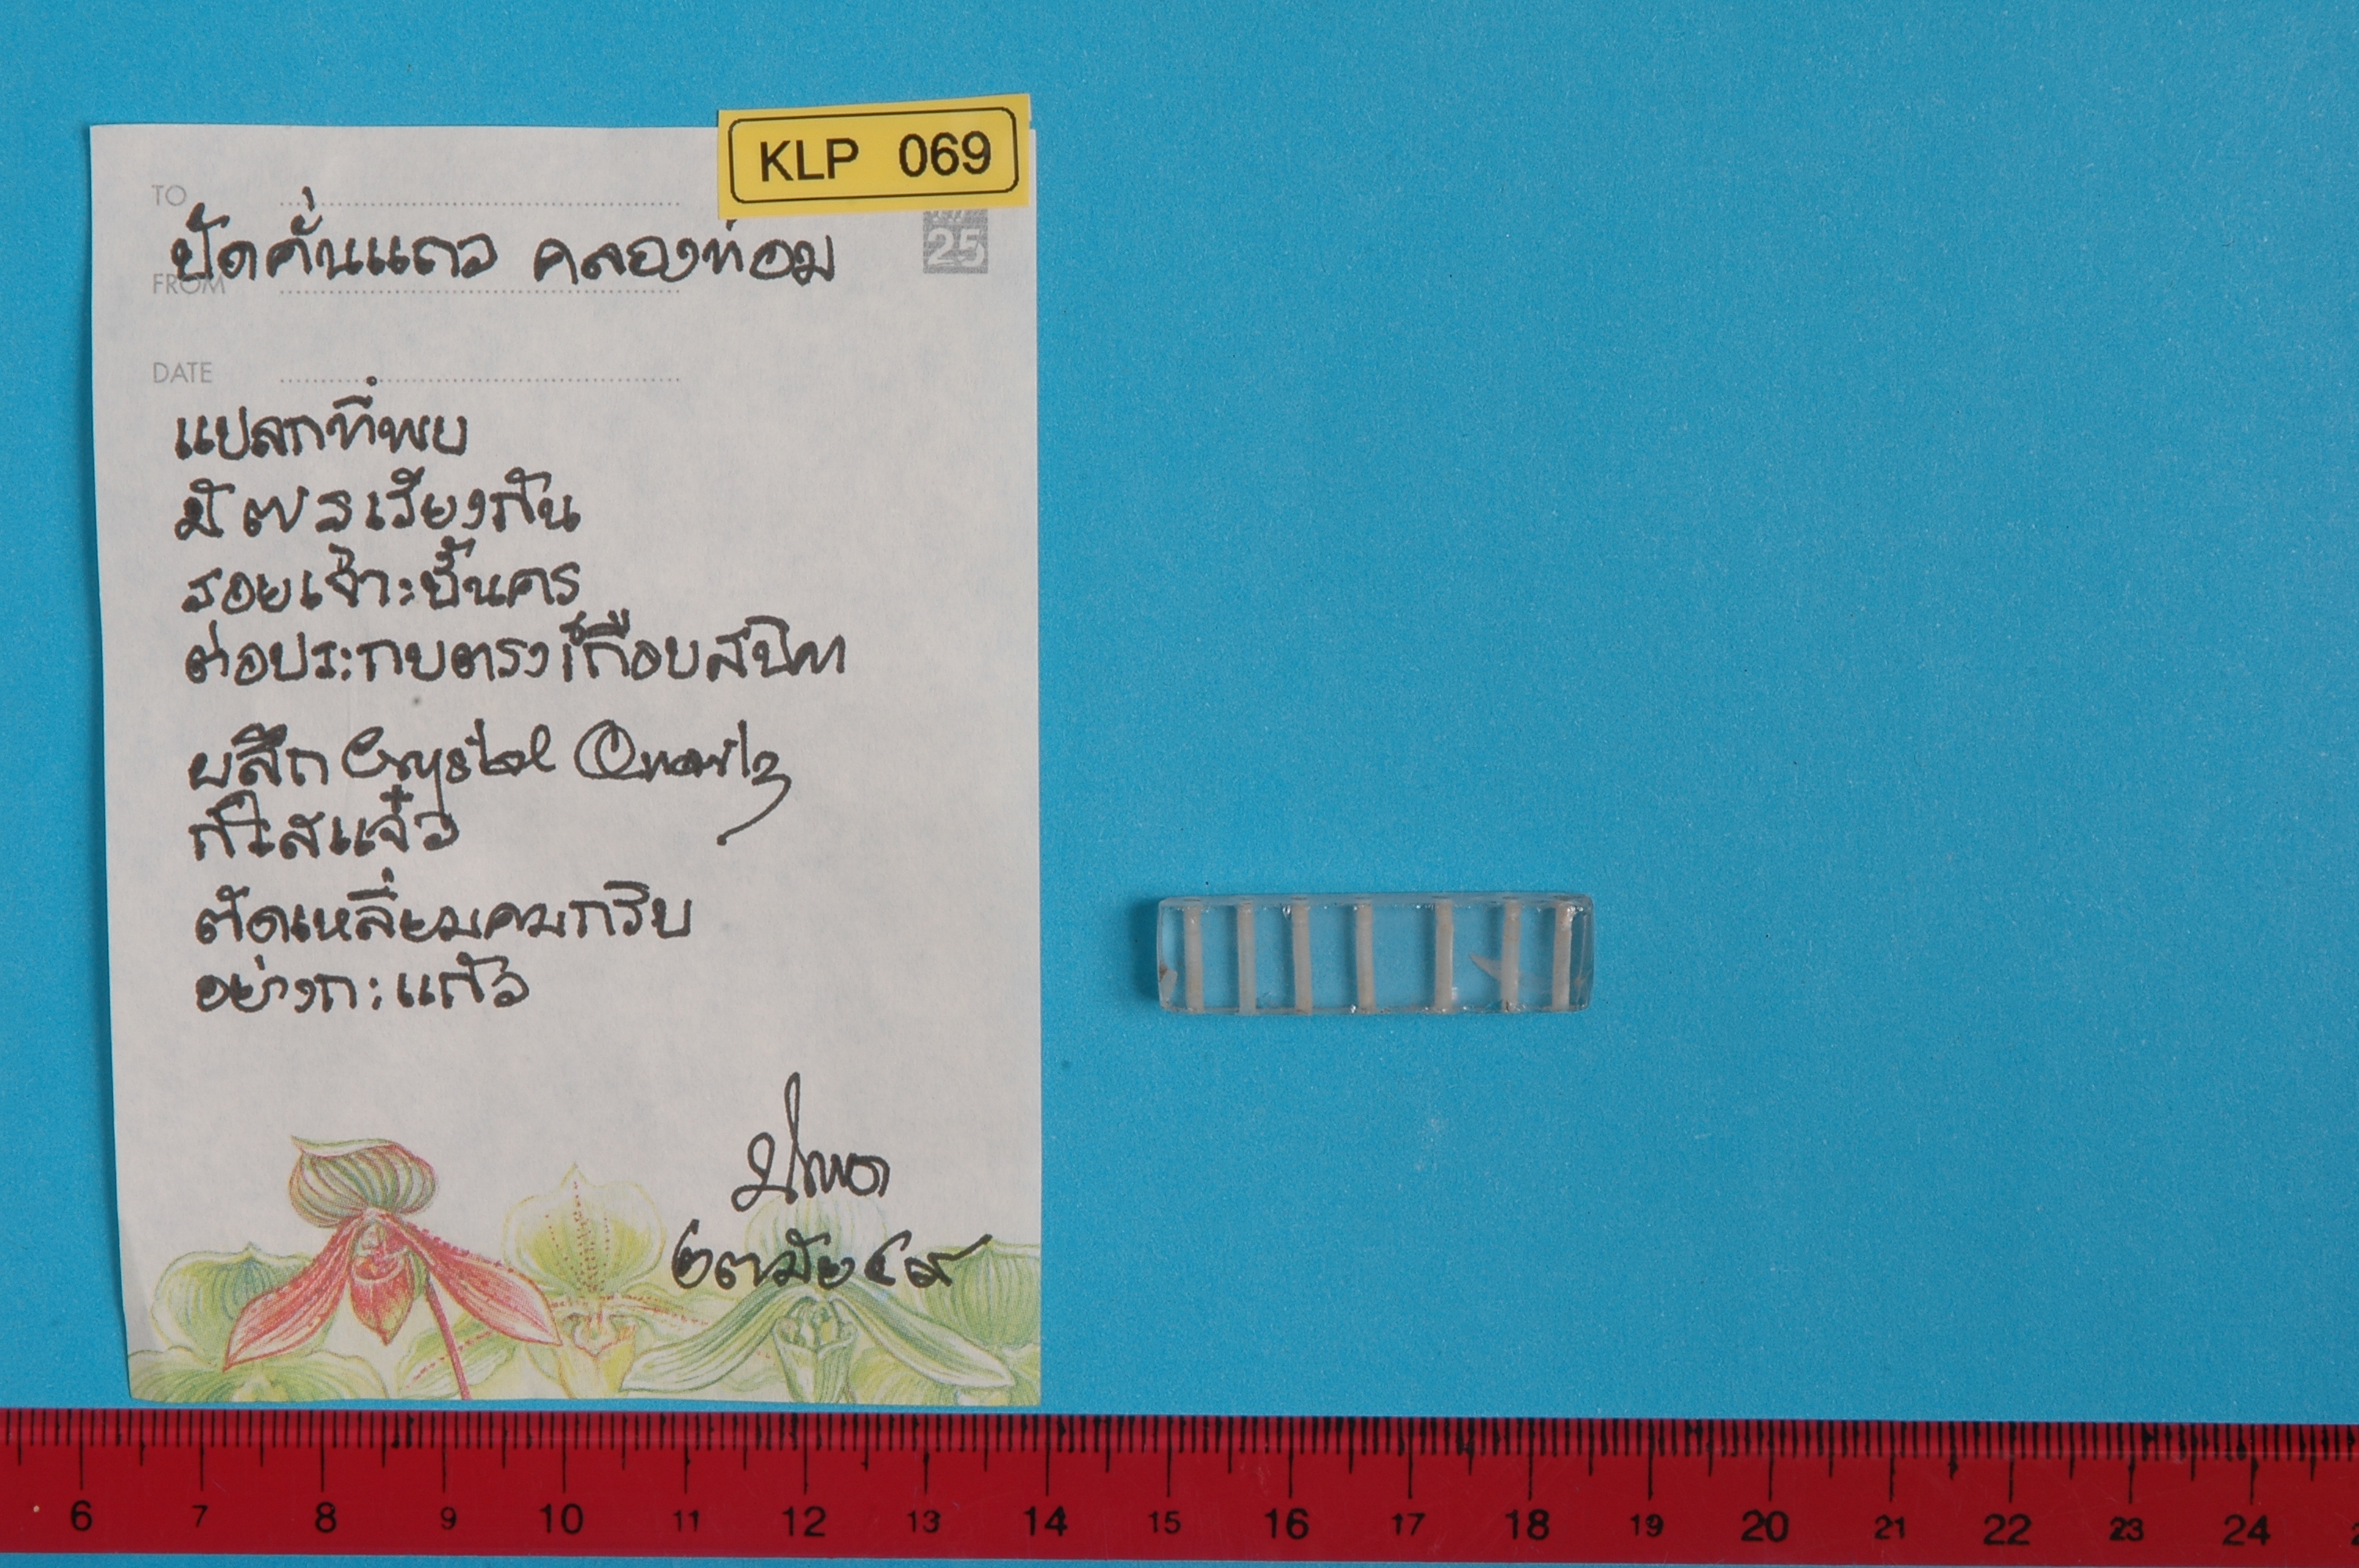 KLP 069
TO
25
ปัดคั่นแถว คลองท่อม
FROM
DATE
แปลกที่พบ
มี ๗ รูเรียงกัน
รอยเจาะขั้นครู
ต่อประกบตรงเกือบสนิท
ผลึก Crystal Quartz
ก็ใสแจ๋ว
ตัดเหลี่ยมคมกริบ
อย่างกะแก้ว
๒๓ มิย ๔๙
6 7 8 9 10 11 12 13 14 15 16 17 18 19 20 21 22 23 24